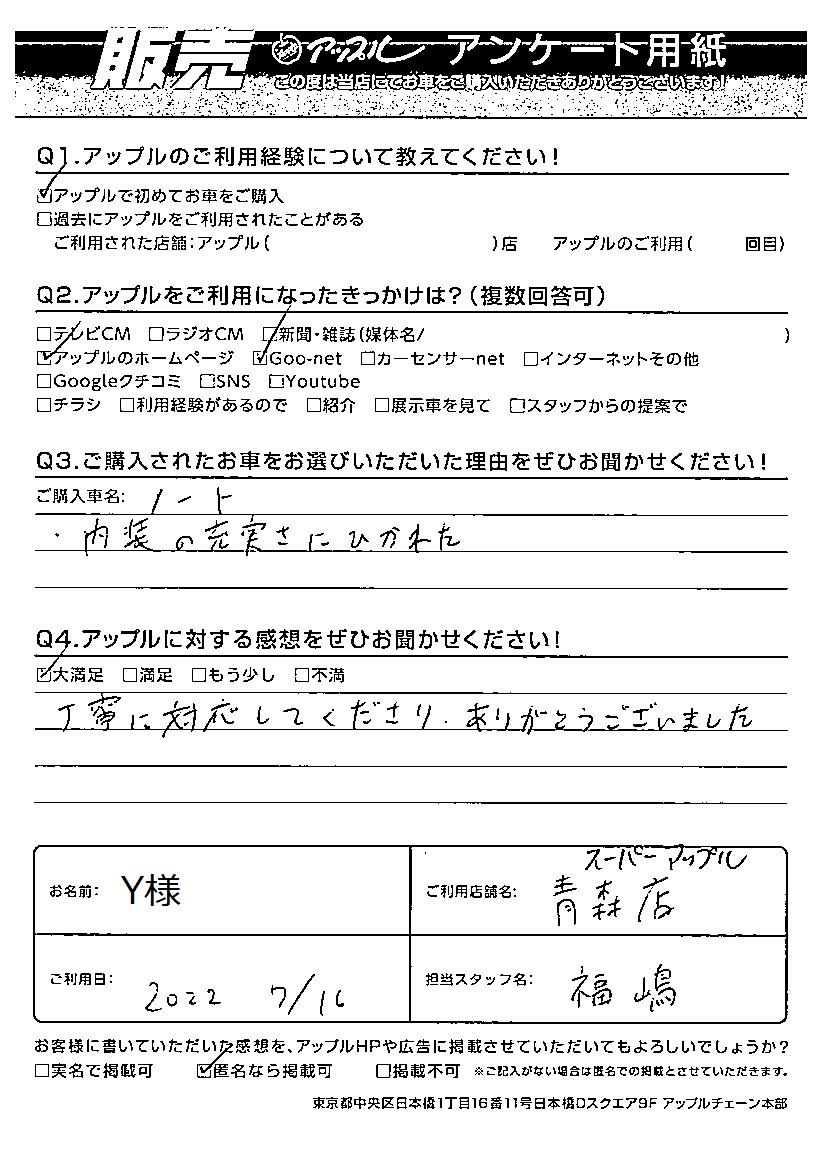 販売 アップル アンケート用紙
この度は当店にてお車をご購入いただきありがとうございます!
Q1.アップルのご利用経験について教えてください!
☑アップルで初めてお車をご購入
□過去にアップルをご利用されたことがある
ご利用された店舗:アップル( )店 アップルのご利用( 回目)
Q2.アップルをご利用になったきっかけは?(複数回答可)
□テレビCM □ラジオCM □新聞・雑誌(媒体名/ )
☑アップルのホームページ ☑Goo-net □カーセンサーnet □インターネットその他
□Googleクチコミ □SNS □Youtube
□チラシ □利用経験があるので □紹介 □展示車を見て □スタッフからの提案で
Q3.ご購入されたお車をお選びいただいた理由をぜひお聞かせください!
ご購入車名: ノート
・内装の充実さにひかれた
Q4.アップルに対する感想をぜひお聞かせください!
☑大満足 □満足 □もう少し □不満
丁寧に対応してくださり.ありがとうございました
お名前: Y様
ご利用店舗名: スーパーアップル
青森店
ご利用日: 2022 7/16
担当スタッフ名: 福嶋
お客様に書いていただいた感想を、アップルHPや広告に掲載させていただいてもよろしいでしょうか?
□実名で掲載可 ☑匿名なら掲載可 □掲載不可 ※ご記入がない場合は匿名での掲載とさせていただきます。
東京都中央区日本橋1丁目16番11号日本橋Dスクエア9F アップルチェーン本部